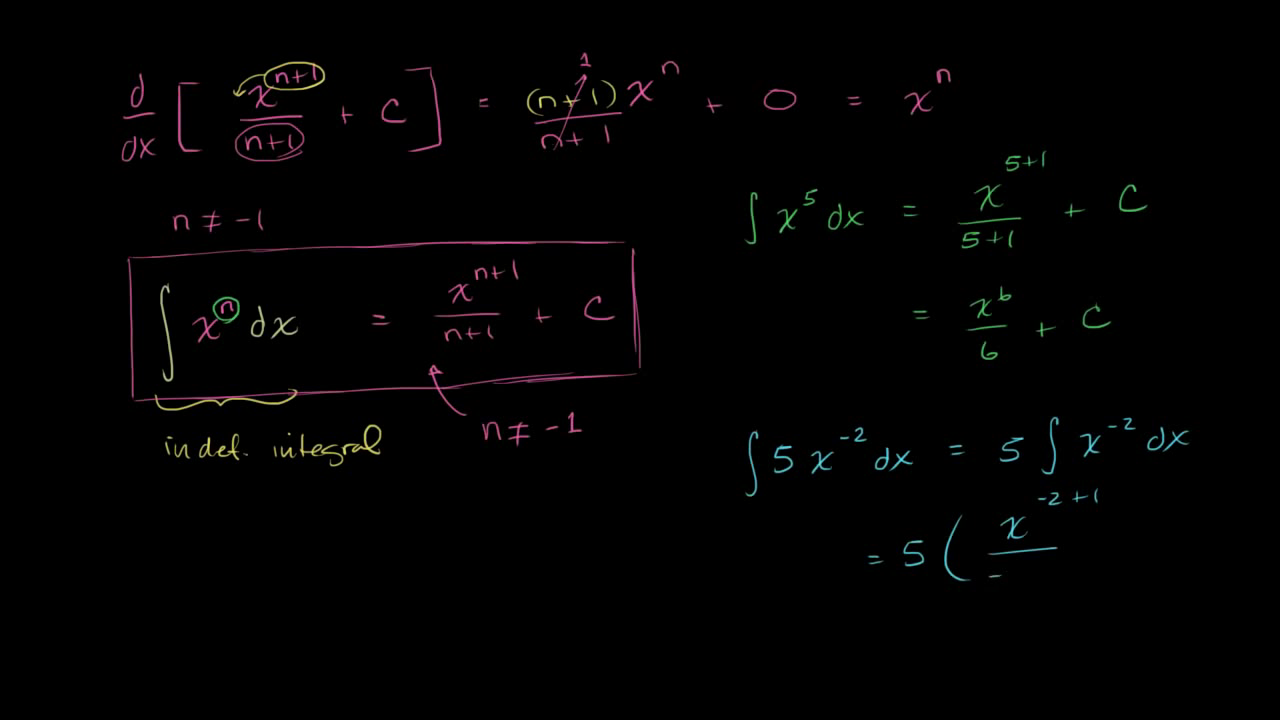 d/dx [ x^(n+1)/(n+1) + C ] = (n+1)x^n/(n+1) + 0 = x^n
1
n ≠ -1
∫ x^n dx = x^(n+1)/(n+1) + C
n ≠ -1
indef. integral
∫ x^5 dx = x^(5+1)/(5+1) + C
= x^6/6 + C
∫ 5x^-2 dx = 5 ∫ x^-2 dx
= 5 ( x^(-2+1)/-